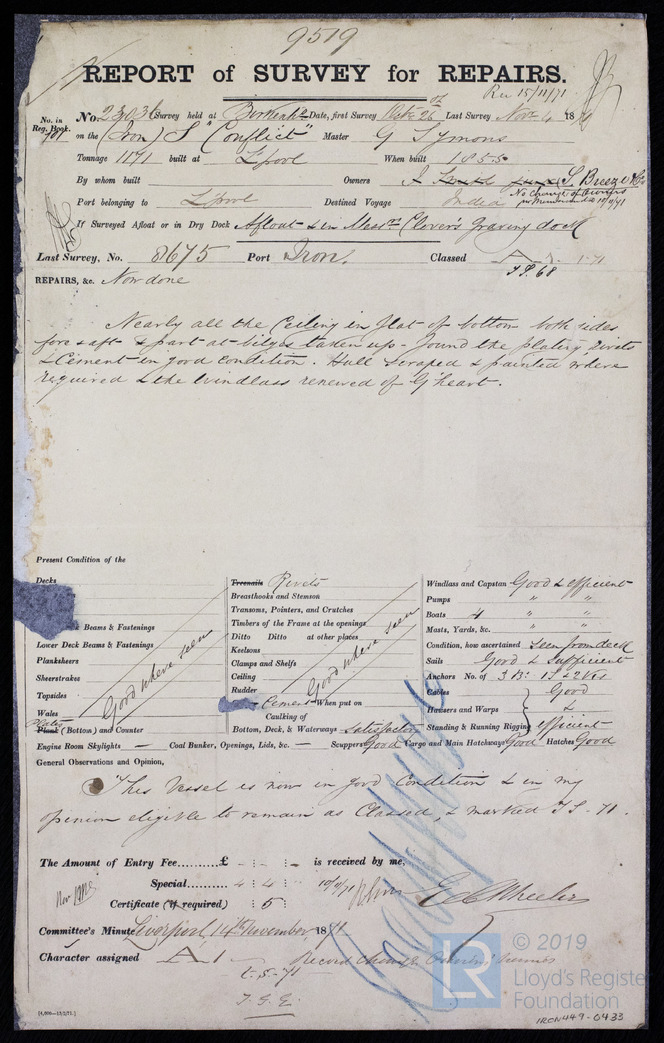 9519
REPORT of SURVEY for REPAIRS.
Rec 15/11/71
No. in Reg. Book. 701
No. 23036 Survey held at Birkenhd Date, first Survey Octr 26th Last Survey Novr 4 1871
on the (Iron) S "Conflict" Master G Symons
Tonnage 1171 built at L'pool When built 1855
By whom built Owners S. Breeze & Co
No Change of Owners
per Memorandum 10/11/71
Port belonging to L'pool Destined Voyage India
If Surveyed Afloat or in Dry Dock Afloat & in Messrs Clover's Graving dock
Last Survey, No. 8675 Port Iron. Classed A 1-71
T.S. 68
REPAIRS, &c. Now done
Nearly all the Ceiling in flat of bottom both sides
fore & aft & part at bilges taken up - found the plating, rivets
& Cement in good condition. Hull scraped & painted where
required & the windlass renewed of G'heart.
Present Condition of the
Decks
Treenails Rivets
Windlass and Capstan Good & efficient
Breasthooks and Stemson
Pumps " "
Transoms, Pointers, and Crutches
Boats 4 " "
Deck Beams & Fastenings
Timbers of the Frame at the openings
Masts, Yards, &c. " "
Lower Deck Beams & Fastenings
Ditto Ditto at other places
Condition, how ascertained Seen from deck
Planksheers
Keelsons
Sails Good & Sufficient
Sheerstrakes
Clamps and Shelfs
Anchors No. of 3 B: 1 S & 2 Kes
Topsides
Ceiling
Cables Good
Good where seen
Rudder
Good where seen
Hausers and Warps &
Wales
Cement When put on
Standing & Running Rigging efficient
Plates
Plank (Bottom) and Counter
Caulking of
Bottom, Deck, & Waterways Satisfactory
Engine Room Skylights — Coal Bunker, Openings, Lids, &c. — Scuppers Good Cargo and Main Hatchways Good Hatches Good
General Observations and Opinion,
This Vessel is now in good Condition & in my
opinion eligible to remain as Classed, & marked T S - 71.
The Amount of Entry Fee.........£ - : - : - is received by me,
Special...... 4 : 4 : 10/11/71
Certificate (if required) : 5 :
Committee's Minute Liverpool, 14th November, 1871
Character assigned A 1 -
Record change Owners' names
t.S-71
[4,000—13/2/71.]
© 2019
Lloyd's Register
Foundation
LR
IRON449-0433